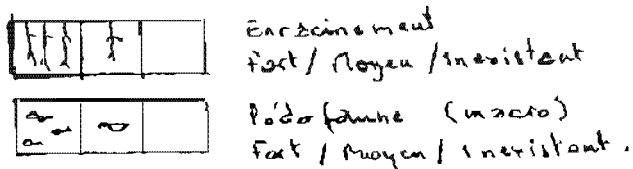 Enracinement
Fort / Moyen / inexistant
Pédofaune (macro)
Fort / Moyen / inexistant.